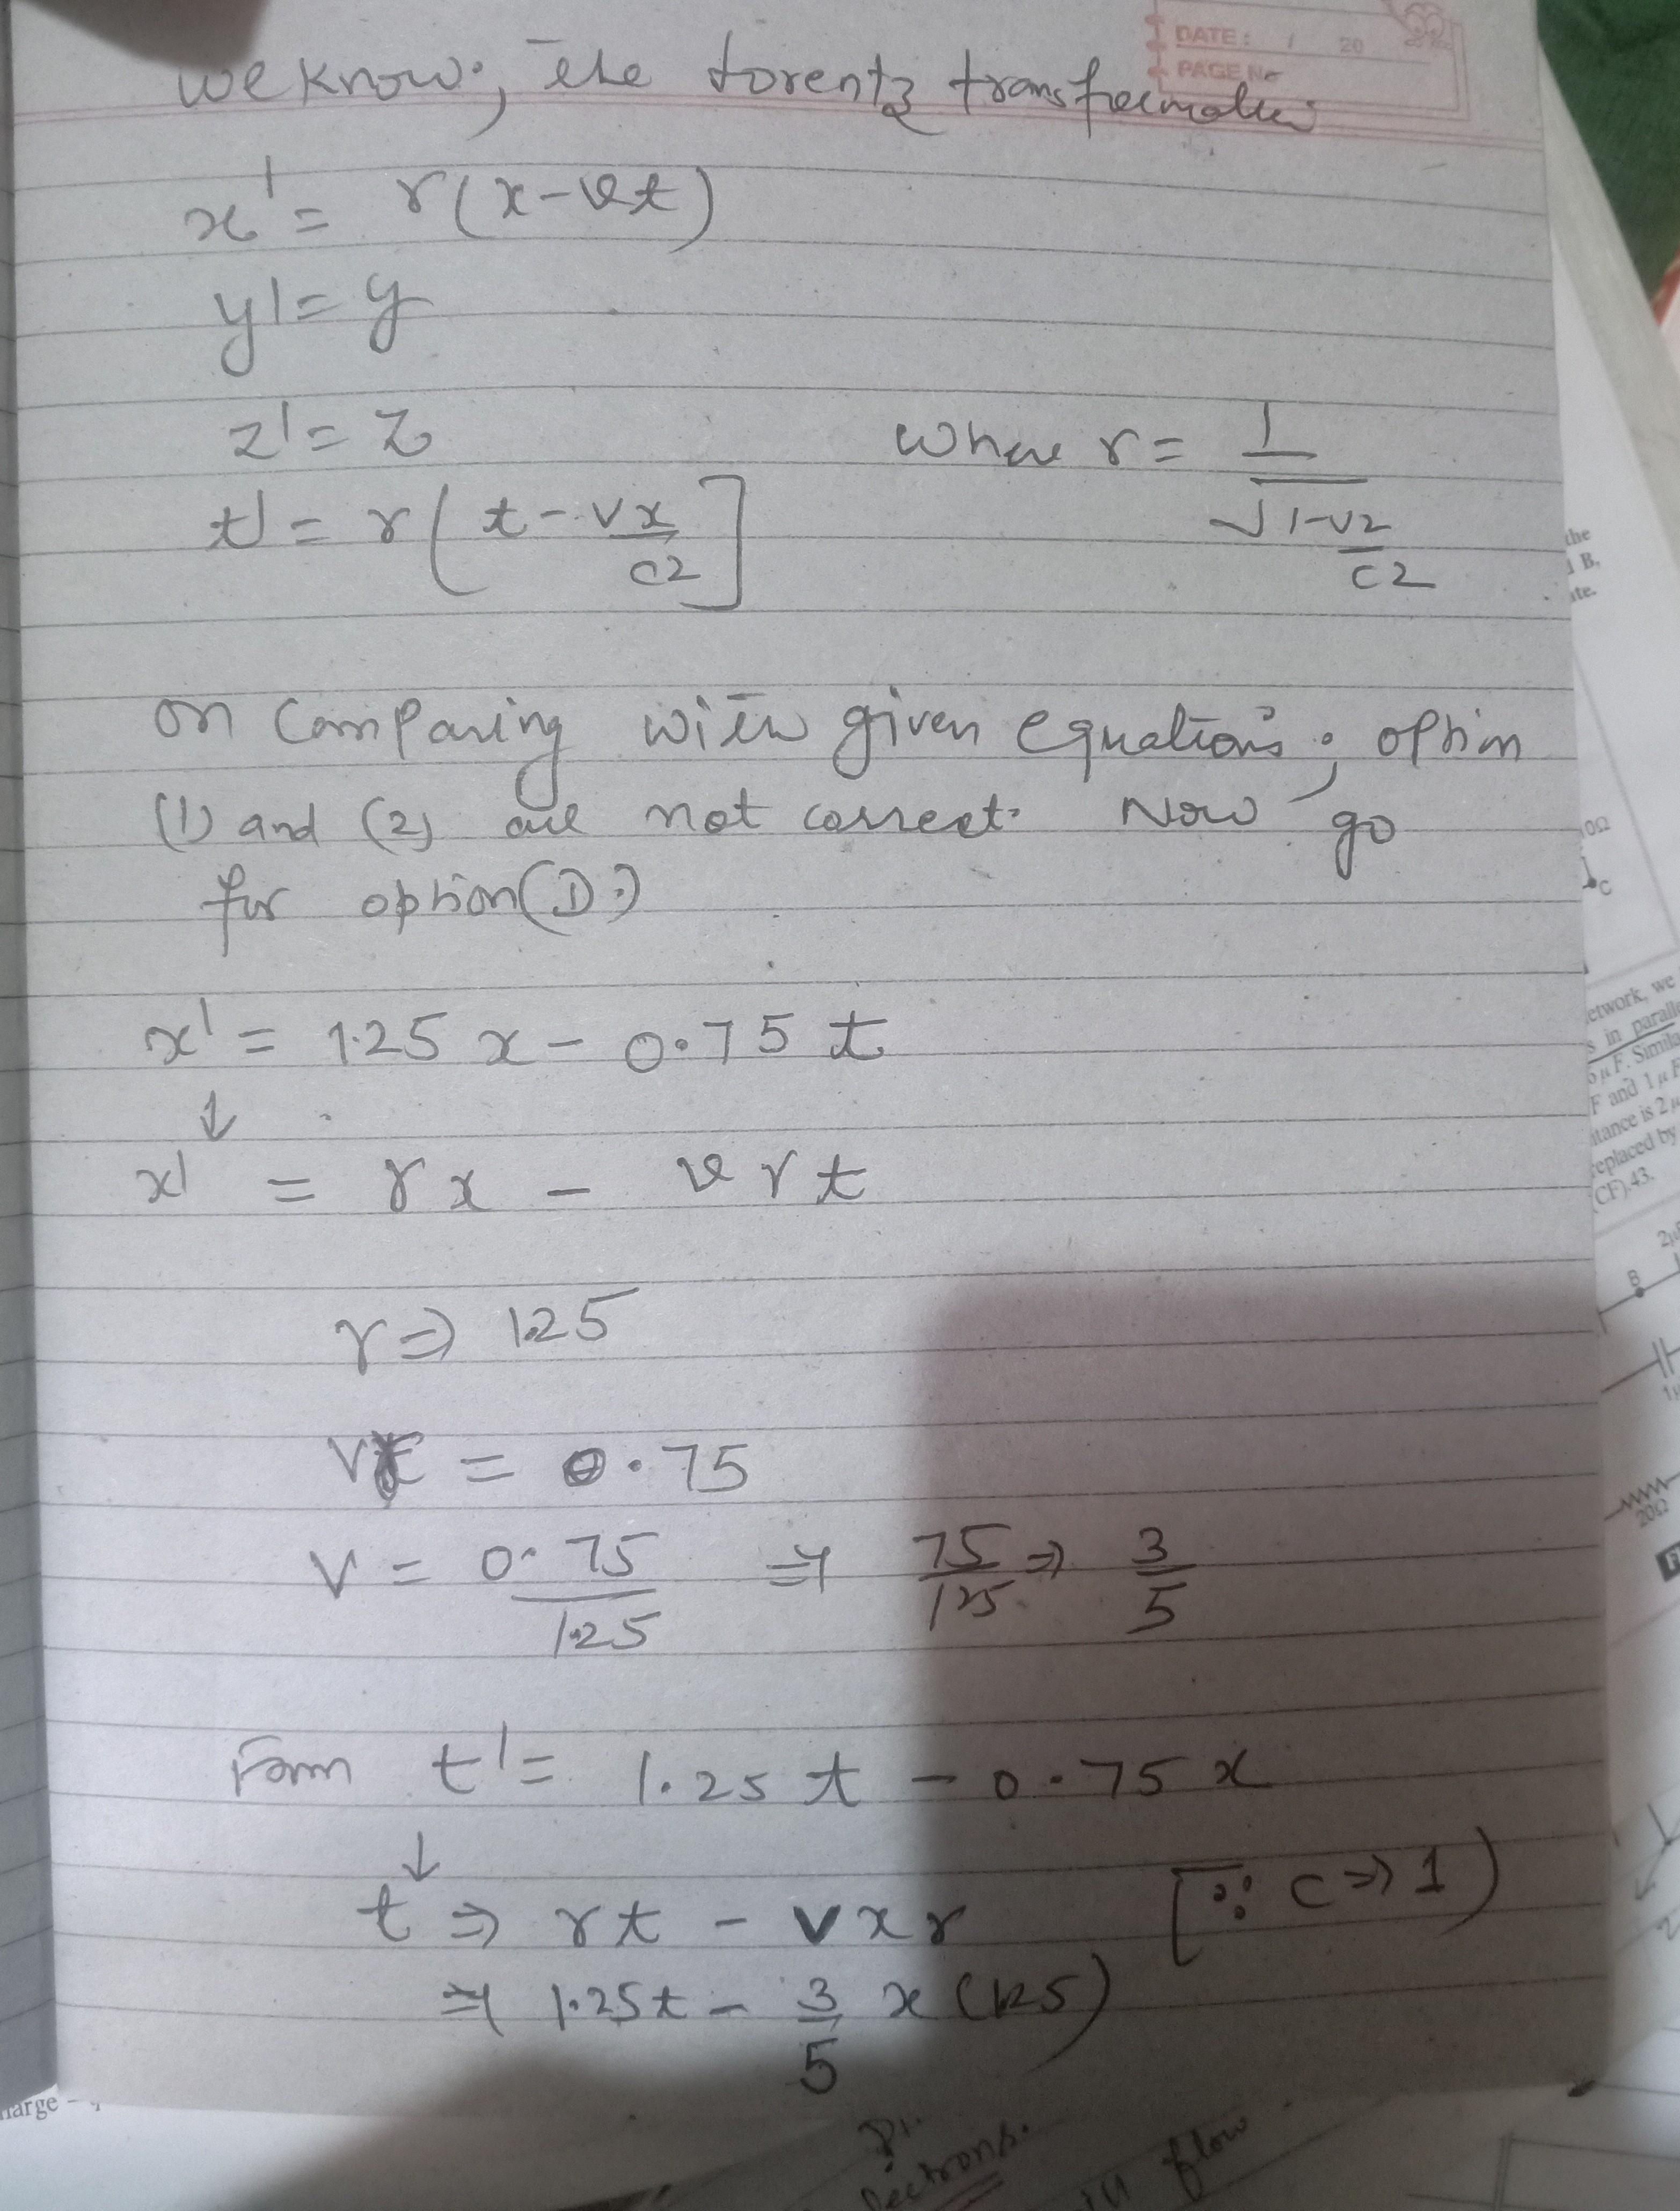 DATE: / 20
PAGE No
we know; the Lorentz transformation
x' = γ(x-vt)
y' = y
z' = z
where γ = 1/√1-v2/c2
t' = γ[t - vx/c2]
on comparing with given equations; option
(1) and (2) are not correct. Now go
for option (D.)
x' = 1.25 x - 0.75 t
↓
x' = γx - vγt
γ ⇒ 1.25
vγ = 0.75
v = 0.75/1.25 ⇒ 75/125 ⇒ 3/5
From t' = 1.25 t - 0.75 x
↓
t ⇒ γt - vxγ [∵ c ⇒ 1)
⇒ 1.25t - 3/5 x (1.25)
the
B,
ate.
10Ω
C
etwork, we
s in paralle
F and 1 μF
itance is 2
replaced by
(CF).43.
B
20Ω
harge -
lectrons.
flow